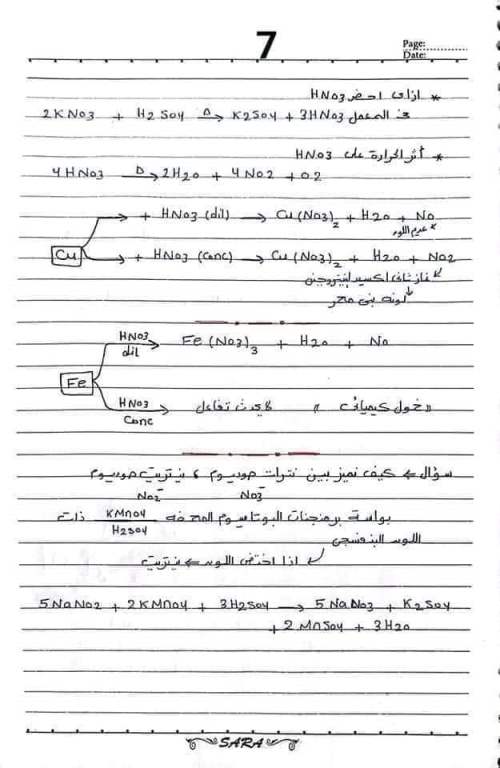 7
Page:
Date:
* ازاى احضر HNO3
فى المعمل 2KNO3 + H2SO4 Δ→ K2SO4 + 3HNO3
* أثر الحرارة على HNO3
4HNO3 Δ→ 2H2O + 4NO2 + O2
Cu
→ + HNO3 (dil) → Cu(NO3)2 + H2O + NO
عديم اللون
→ + HNO3 (conc) → Cu(NO3)2 + H2O + NO2
غاز ثانى اكسيد النيتروجين
لونه بنى محمر
Fe
HNO3 dil → Fe(NO3)3 + H2O + NO
HNO3 Conc → لا يحدث تفاعل " خمول كيميائى "
سؤال ← كيف نميز بين نترات صوديوم و نيتريت صوديوم
NO2- NO3-
بواسطة برمنجنات البوتاسيوم المحمضة KMnO4 / H2SO4 ذات
اللون البنفسجى
اذا اختفى اللون ← نيتريت
5NaNO2 + 2KMnO4 + 3H2SO4 → 5NaNO3 + K2SO4
+ 2MnSO4 + 3H2O
SARA